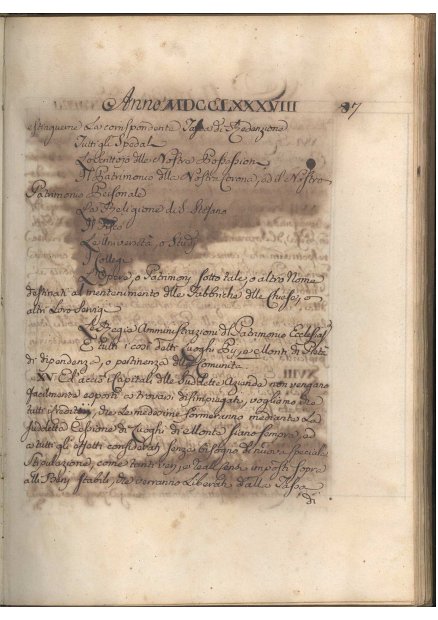 Anno MDCCLXXXVIII 37
estinguerne La corrispondente Tassa di Redenzione
Tutti gli Spedali
Lo Scrittojo delle Nostre Possessioni
Il Patrimonio della Nostra Corona, ed il Nostro
Patrimonio Personale
La Religione di S. Stefano
Il Fisco
Le Università, o Studj
I Collegi
Le Opere, o Patrimonj sotto tale, o altro Nome
destinati al mantenimento delle Fabbriche delle Chiese, o
altri Loro Servigi
Le Regie Amministrazioni di Patrimonio Ecclesiast
E tutti i così detti Luoghi Pij, e Monti
di dipendenza, o pertinenza delle Comunità
XV Ed acciò i Capitali delle Suddette Aziende non vengano
facilmente esposti a trovarsi disimpiegati, vogliamo che
tutti i Crediti, che Le medesime formeranno mediante La
suddetta Cessione di Luoghi di Monte siano sempre, ed
a tutti gli effetti considerati senza bisogno di nuova speciale
Stipulazione, come tanti imposti sopra
alli Beni Stabili, che verranno Liberati dalla Tassa
di